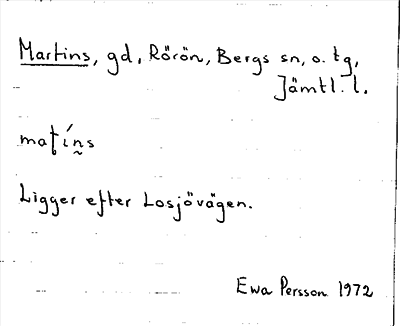 Martins, gd, Rörön, Bergs sn, o. tg,
Jämtl. l.
maʈín̰s
Ligger efter Losjövägen.
Ewa Persson 1972